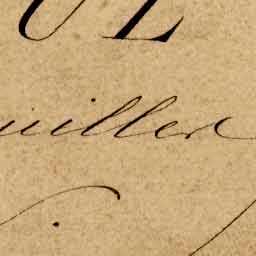 UL
uillet